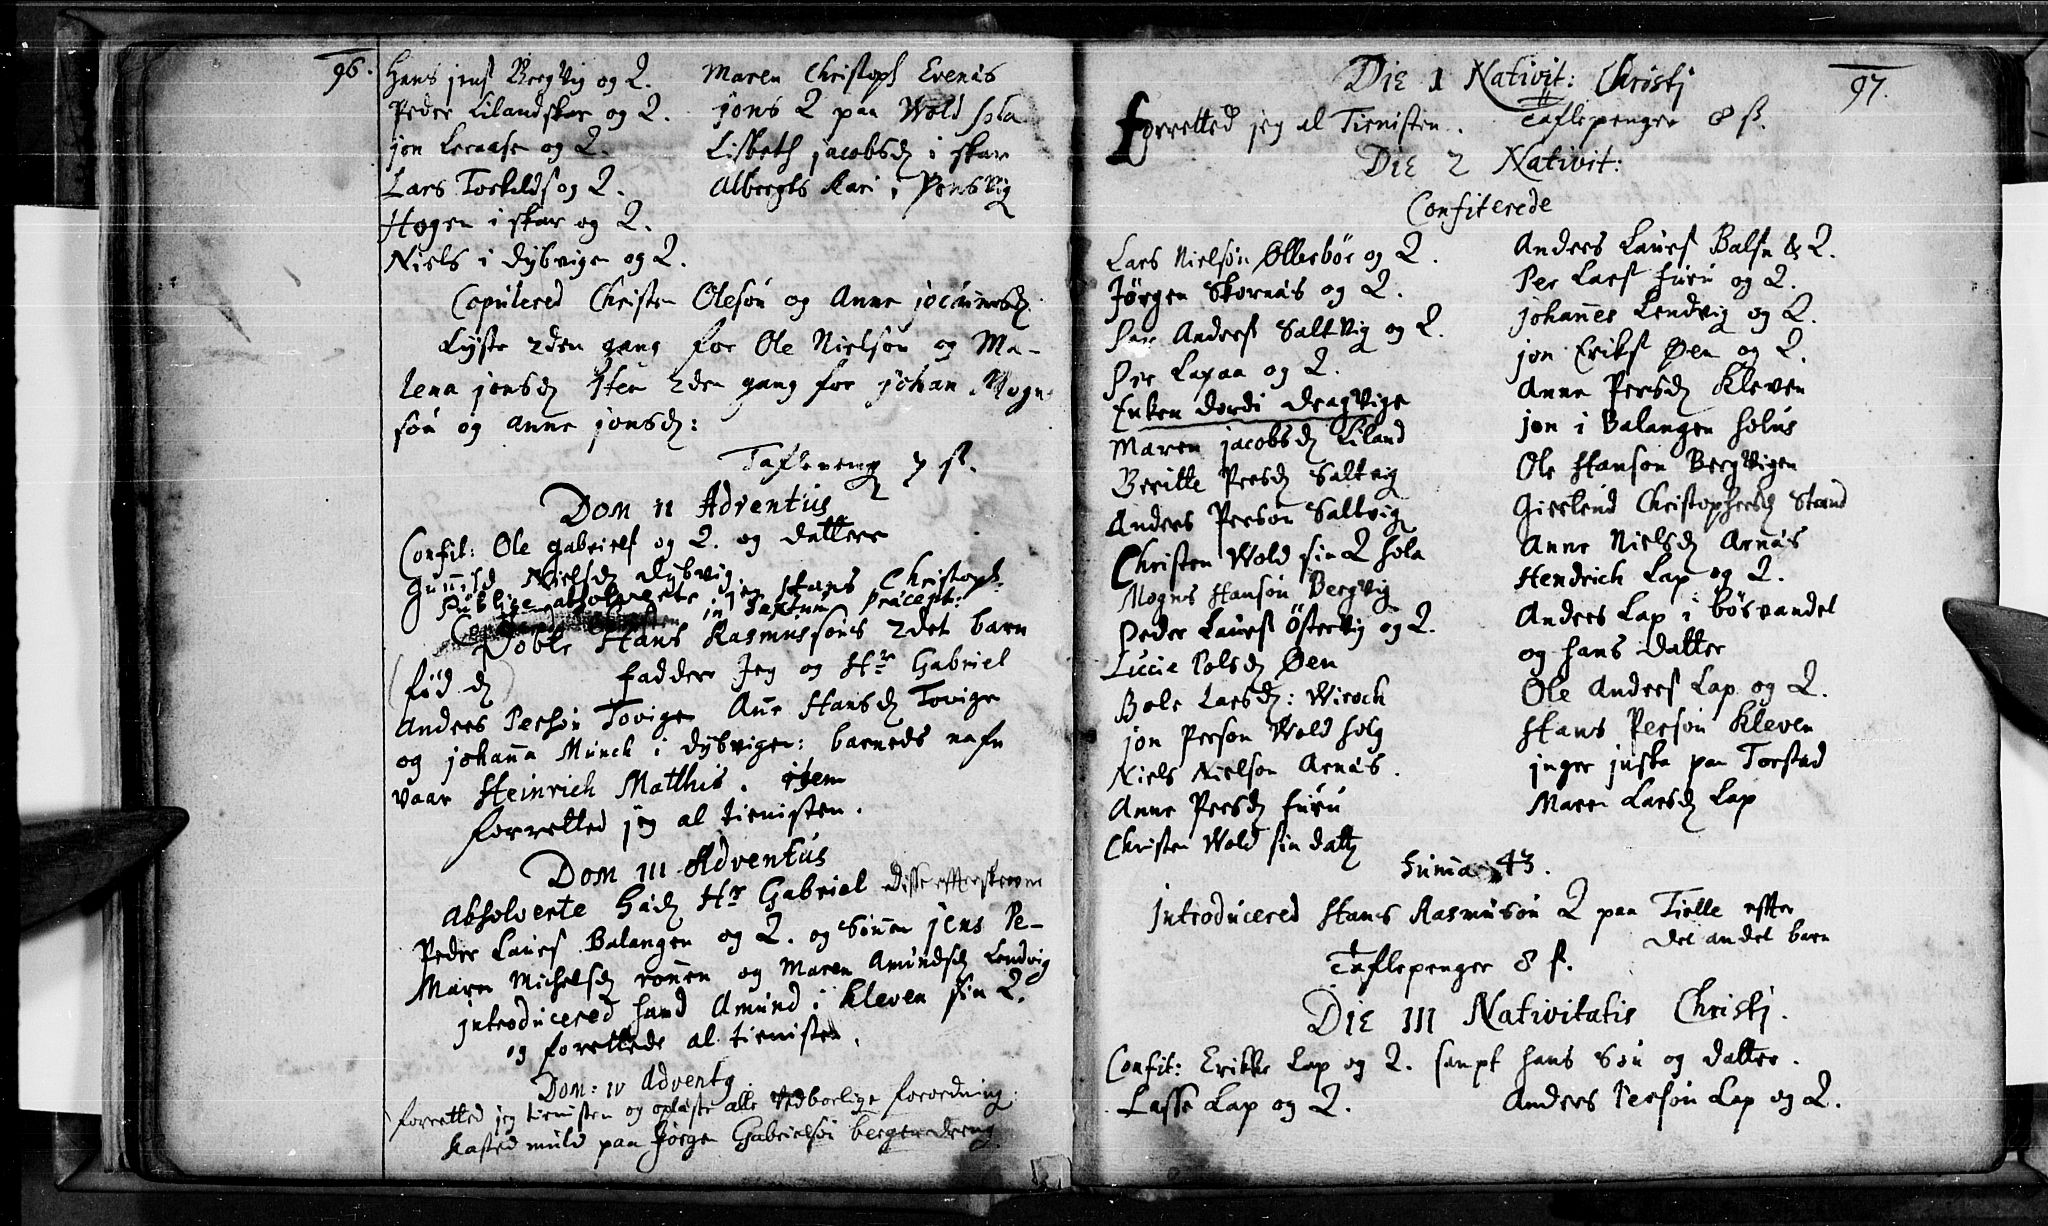 96.
Hans jens Bergvig og Q.
Peder Lilandskar og Q.
jon Leraase og Q.
Lars Torkilds og Q.
Hogen i skar og Q.
Niels i dybvigen og Q.
Maren Christoph Evenås
jons Q paa Wold
Lisbeth jacobsd i skar
Albregts kari i
Copulered Christen Olesøn og Anne
Lyste 2den gang for Ole Nielsøn og Ma-
lena jonsd Iten 2den gang for johan Mogn
søn og Anne jonsd:
7 s.
Dom II Adventus
Confit: Ole gabriels og Q. og datteren
Gunild Nielsd dybvig
Publice absolverte jeg Hans Christoph
in sextum præcept:
Døbte Hans Rasmussøns 2det barn
(fød d ) fadder Jeg og Hr Gabriel
Anders Persøn Tovigen Ane Hansd Tovigen
og johanna Munck i dybvigen: barneds nafn
vaar Heinrich Matthis. item
forretted jeg al tienisten.
Dom III Adventus
Absolverte Hr Gabriel disse effterskrevne
Peder Laurs Balangen og Q. og Sønnen jens Pe-
Maren Michelsd rønnen og Maren Amundsd Lendvig
introducered hand Amund i Kleven sin Q.
og forrettede al tienisten.
Dom: IV Adventy
forretted jeg tienisten og oplæste alle forordning
kasted muld paa Jørgen Gabrielsøn
97.
Die I Nativit: Christj
forretted jeg al Tienisten. Taflepenger 8 s.
Die 2 Nativit:
Confiterede
Lars Nielsøn Ølleshør og Q.
Jørgen Skornås og Q.
Per Anders Saltvig og Q.
Per Laxaa og Q.
Enken dordi dragvigen
Maren jacobsd Liland
Beritte Persd Saltvig
Anders Person Saltvig
Christen Wold sin Q
Mogns Hansøn Bergvig
Peder Laurs Østervig og Q.
Lucia Polsd Øen
Bole Larsd: Wiroch
jon Person Wold
Niels Nielsøn Arnås.
Anne Persd furu
Christen Wold sin datt
Anders Laurs Balsn & Q.
Per Lars furu og Q.
johannes Lendvig og Q.
jon Eriks Øen og Q.
Anna Persd Kleven
jon i Balangen
Ole Hanson Bergvigen
Giertrud Christophersd Strand
Anne Nielsd Arnås
Hendrich Lap og Q.
Anders Lap i bøsvandet
og hans datter
Ole Anders Lap og Q.
Hans Persøn Kleven
inger paa Torstad
Maren Larsd Lap
Summa 43.
Introducered Hans Rasmusøn Q paa Tielle effter
det andet barn
Taflepenger 8 s.
Die III Nativitatis Christj.
Confit: Erikke Lap og Q. sampt hans søn og datter.
Lasse Lap og Q.
Anders Persøn Lap og Q.